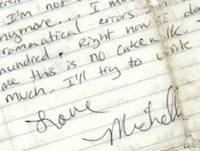 I'm not
anymore... I me
grammatical errors
hundred. Right now so
me this is no cakewalk.
much. I'll try to write
Love
Michell